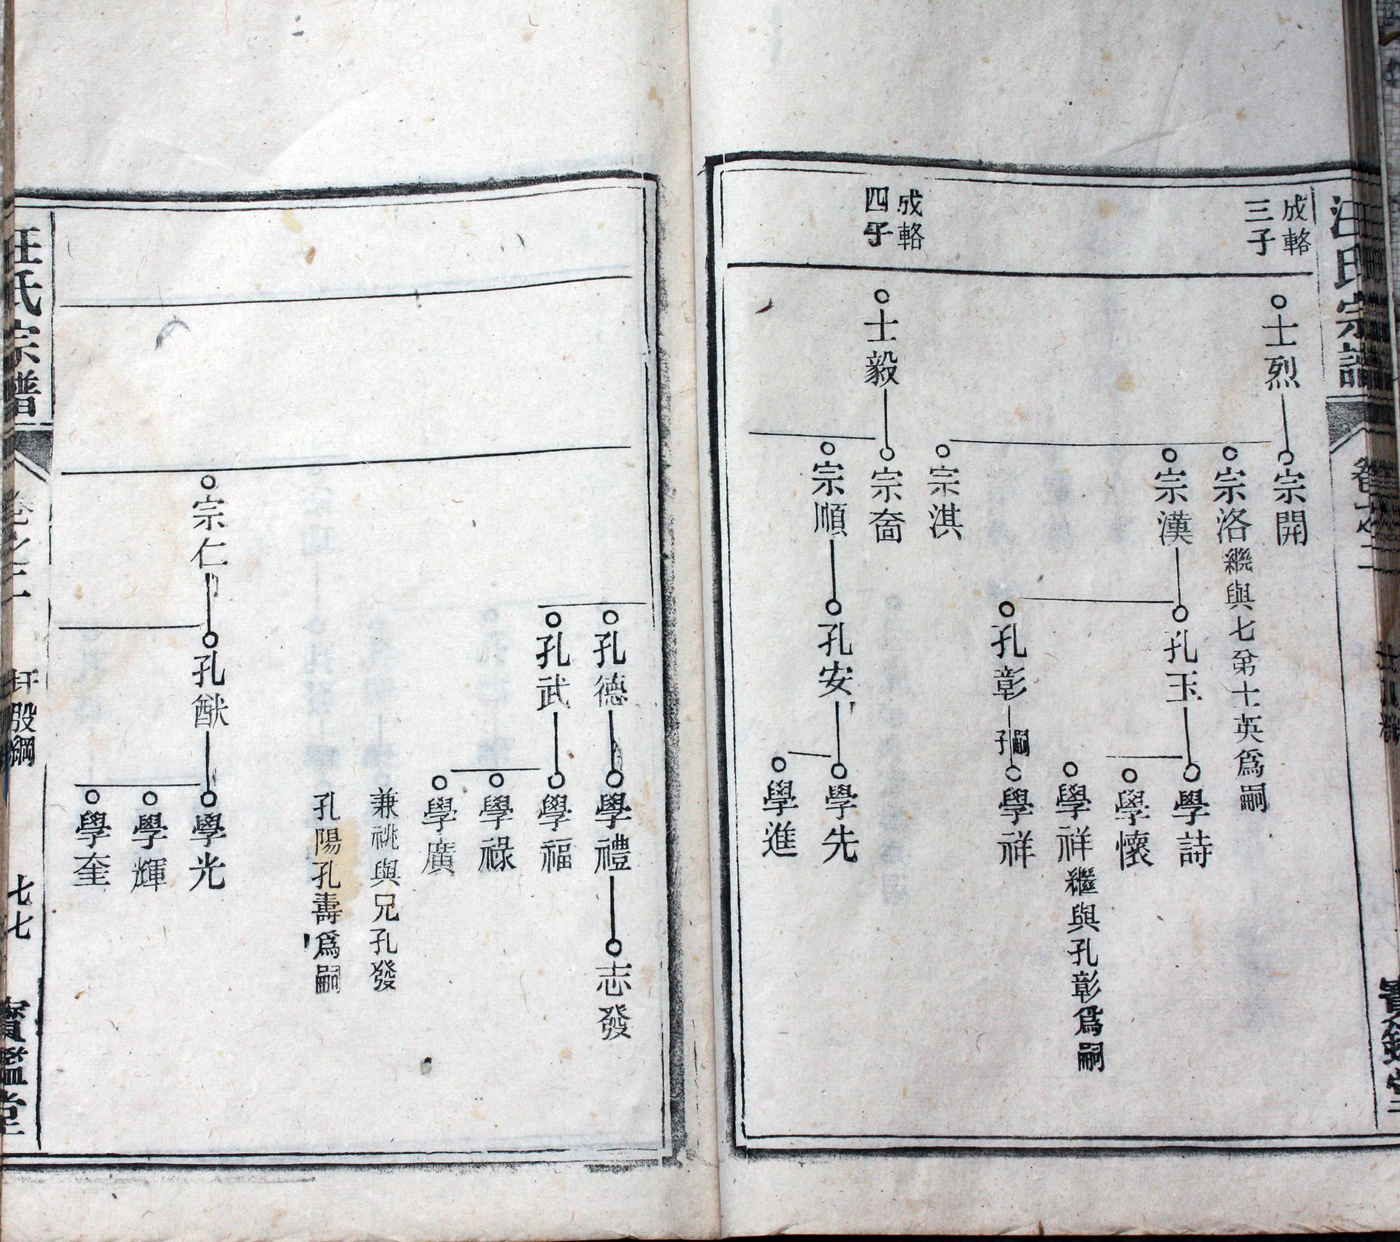 汪氏宗譜
卷之二
成輅
三子
士烈
宗開
宗洛繼與七弟士英爲嗣
宗漢
孔玉
學詩
學懷
學祥繼與孔彰爲嗣
孔彰
嗣子
學祥
宗淇
成輅
四子
士毅
宗奮
宗順
孔安
學先
學進
孔德
學禮
志發
孔武
學福
學祿
學廣
兼祧與兄孔發
孔陽孔壽爲嗣
宗仁
孔猷
學光
學輝
學奎
汪氏宗譜
卷之二
七七
寶鑑堂